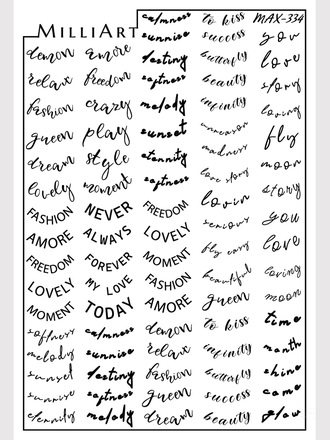 calmness to kiss MAX-334
MILLIART
sunrise success you
demon amore destiny butterfly love
relax freedom softness beauty story
fashion crazy melody infinity loving
queen play sunset unreason fly
dream style eternity madness moon
lovely moment softness love story story
FASHION NEVER FREEDOM lovin you
AMORE ALWAYS LOVELY serious love
FREEDOM FOREVER MOMENT fly easy loving
LOVELY MY LOVE FASHION beautiful moon
MOMENT TODAY AMORE queen time
softness calmness demon to kiss month
melody sunrise relax infinity shine
sunset destiny fashion butterfly come
sunrise softness queen success glow
eternity melody dream beauty